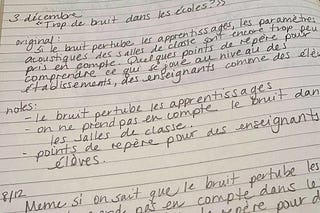 3 décembre
"Trop de bruit dans les écoles???
original:
Si le bruit pertube les apprentissages, les paramètres
acoustiques des salles de classe sont encore trop peu
pris en compte. Quelques points de repère pour
comprendre ce qui se joue au niveau des
établissements, des enseignants comme des élèv
notes:
- le bruit pertube les apprentissages
- on ne prend pas en compte le bruit dan
les salles de classe.
- points de repère pour des enseignants
élèves.
8/12
Meme si on sait que le bruit pertube les
pas en compte dans le
repère pour d